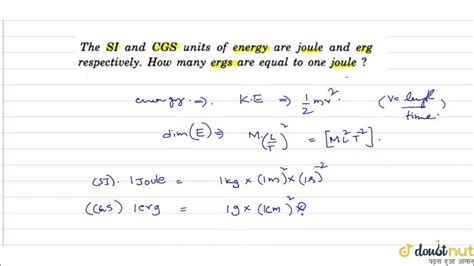 The SI and CGS units of energy are joule and erg
respectively. How many ergs are equal to one joule ?
energy ⇒. K.E ⇒ 1/2 mv². (V= length/time.)
dim(E) ⇒ M.(L/T)² = [ML²T⁻²].
(SI). 1 Joule = 1kg × (1m)² × (1s)⁻²
(CGS) 1 erg = 1g × (1cm)² ×
doubtnut
पढ़ना हुआ आसान